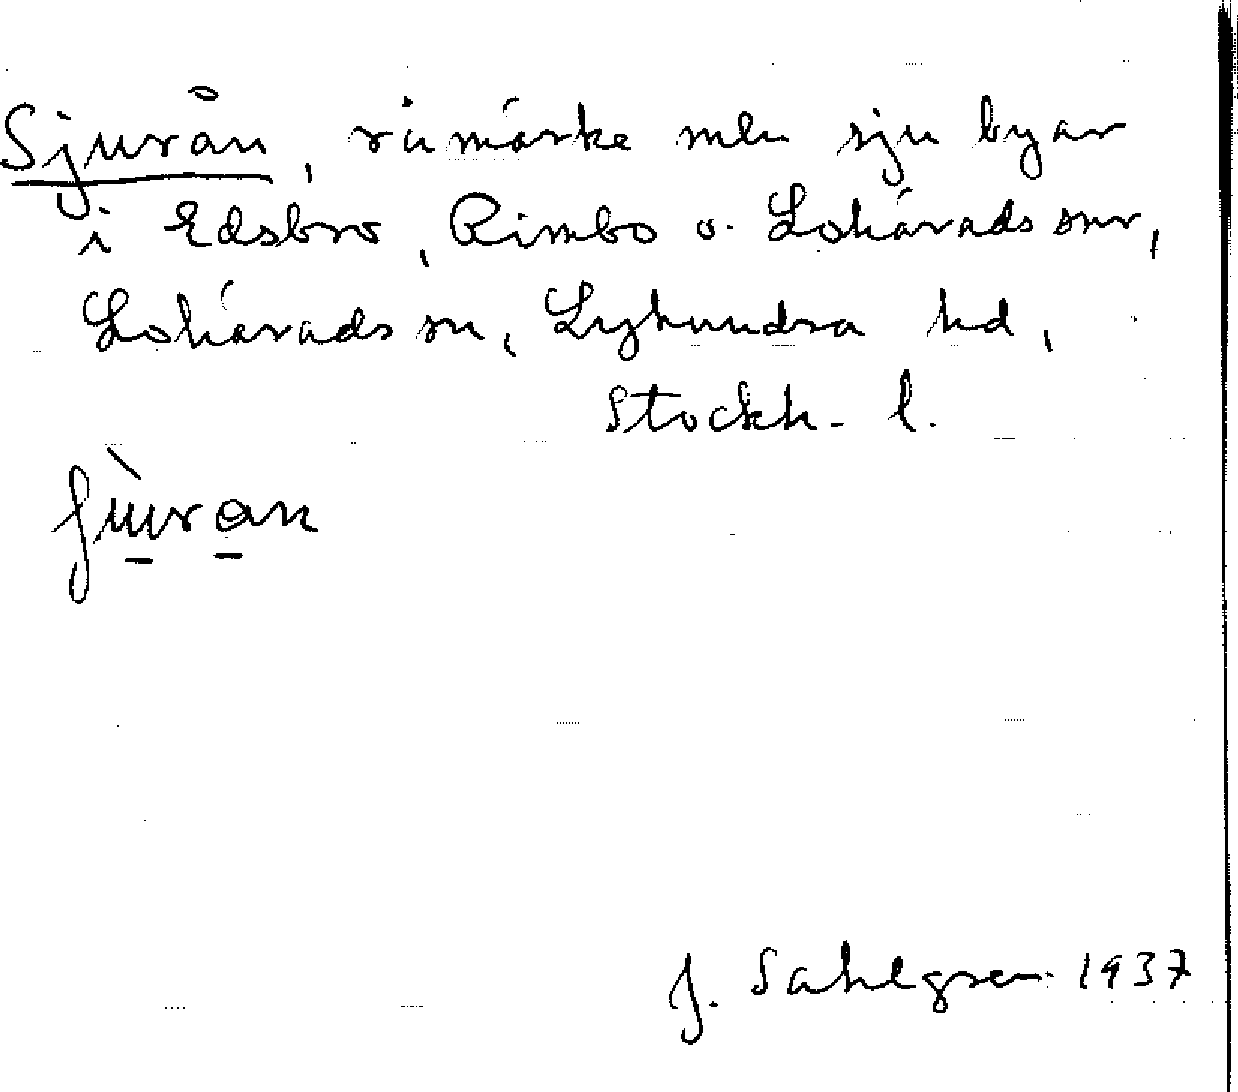 Sjurån, råmärke mln sju byar
i Edsbro, Rimbo o. Lohärads snr,
Lohärads sn, Lyhundra hd,
Stockh. l.
J. Sahlgren 1937